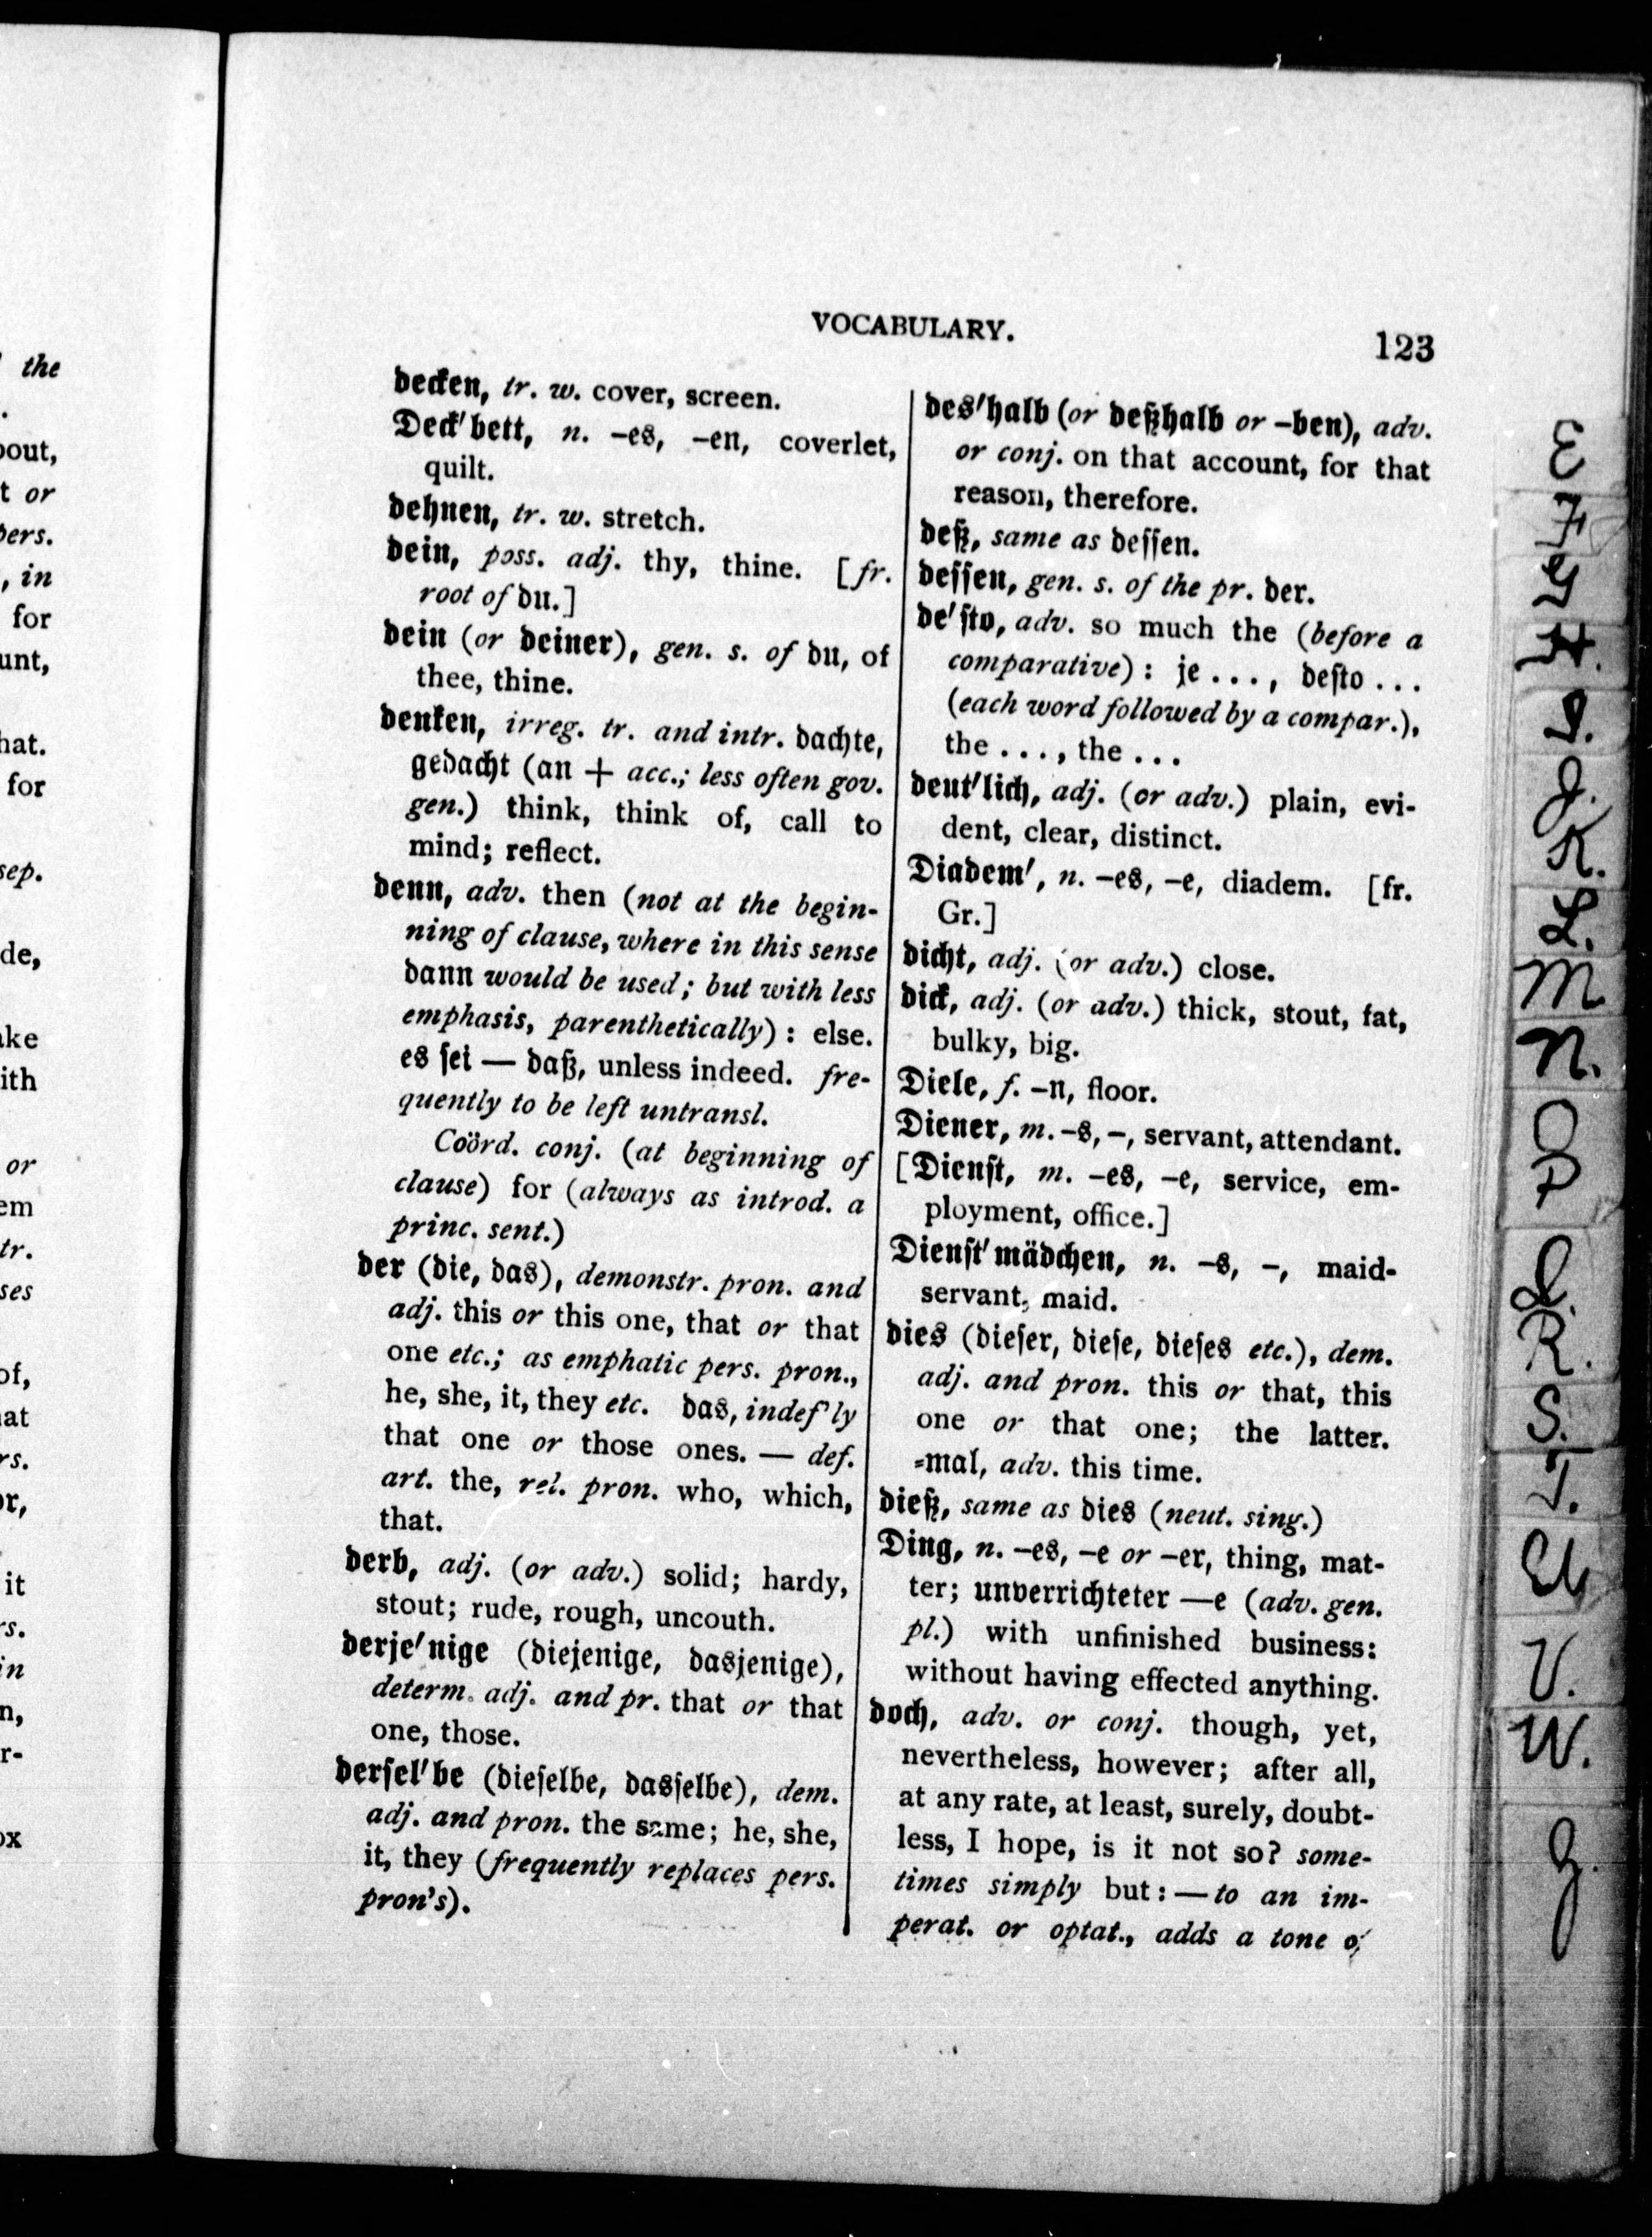 the
.
bout,
t or
pers.
, in
for
unt,
hat.
for
sep.
de,
ake
ith
or
em
tr.
ses
of,
at
rs.
or,
it
rs.
in
n,
r-
ox
VOCABULARY.
123
decken, tr. w. cover, screen.
Deck'bett, n. –es, –en, coverlet,
quilt.
dehnen, tr. w. stretch.
dein, poss. adj. thy, thine. [fr.
root of du.]
dein (or deiner), gen. s. of du, of
thee, thine.
denken, irreg. tr. and intr. dachte,
gedacht (an + acc.; less often gov.
gen.) think, think of, call to
mind; reflect.
denn, adv. then (not at the begin-
ning of clause, where in this sense
dann would be used; but with less
emphasis, parenthetically): else.
es sei — daß, unless indeed. fre-
quently to be left untransl.
Coörd. conj. (at beginning of
clause) for (always as introd. a
princ. sent.)
der (die, das), demonstr. pron. and
adj. this or this one, that or that
one etc.; as emphatic pers. pron.,
he, she, it, they etc. das, indef'ly
that one or those ones. — def.
art. the, rel. pron. who, which,
that.
derb, adj. (or adv.) solid; hardy,
stout; rude, rough, uncouth.
derje'nige (diejenige, dasjenige),
determ. adj. and pr. that or that
one, those.
dersel'be (dieselbe, dasselbe), dem.
adj. and pron. the same; he, she,
it, they (frequently replaces pers.
pron's).
des'halb (or deßhalb or –ben), adv.
or conj. on that account, for that
reason, therefore.
deß, same as dessen.
dessen, gen. s. of the pr. der.
de'sto, adv. so much the (before a
comparative): je ..., desto ...
(each word followed by a compar.),
the ..., the ...
deut'lich, adj. (or adv.) plain, evi-
dent, clear, distinct.
Diadem', n. –es, –e, diadem. [fr.
Gr.]
dicht, adj. (or adv.) close.
dick, adj. (or adv.) thick, stout, fat,
bulky, big.
Diele, f. –n, floor.
Diener, m. –s, –, servant, attendant.
[Dienst, m. –es, –e, service, em-
ployment, office.]
Dienst'mädchen, n. –s, –, maid-
servant, maid.
dies (dieser, diese, dieses etc.), dem.
adj. and pron. this or that, this
one or that one; the latter.
=mal, adv. this time.
dieß, same as dies (neut. sing.)
Ding, n. –es, –e or –er, thing, mat-
ter; unverrichteter —e (adv. gen.
pl.) with unfinished business:
without having effected anything.
doch, adv. or conj. though, yet,
nevertheless, however; after all,
at any rate, at least, surely, doubt-
less, I hope, is it not so? some-
times simply but: — to an im-
perat. or optat., adds a tone of
E
F
G
H.
I.
J.
K.
L.
M
N.
O
P
Q.
R.
S.
T.
U
V.
W.
Z.